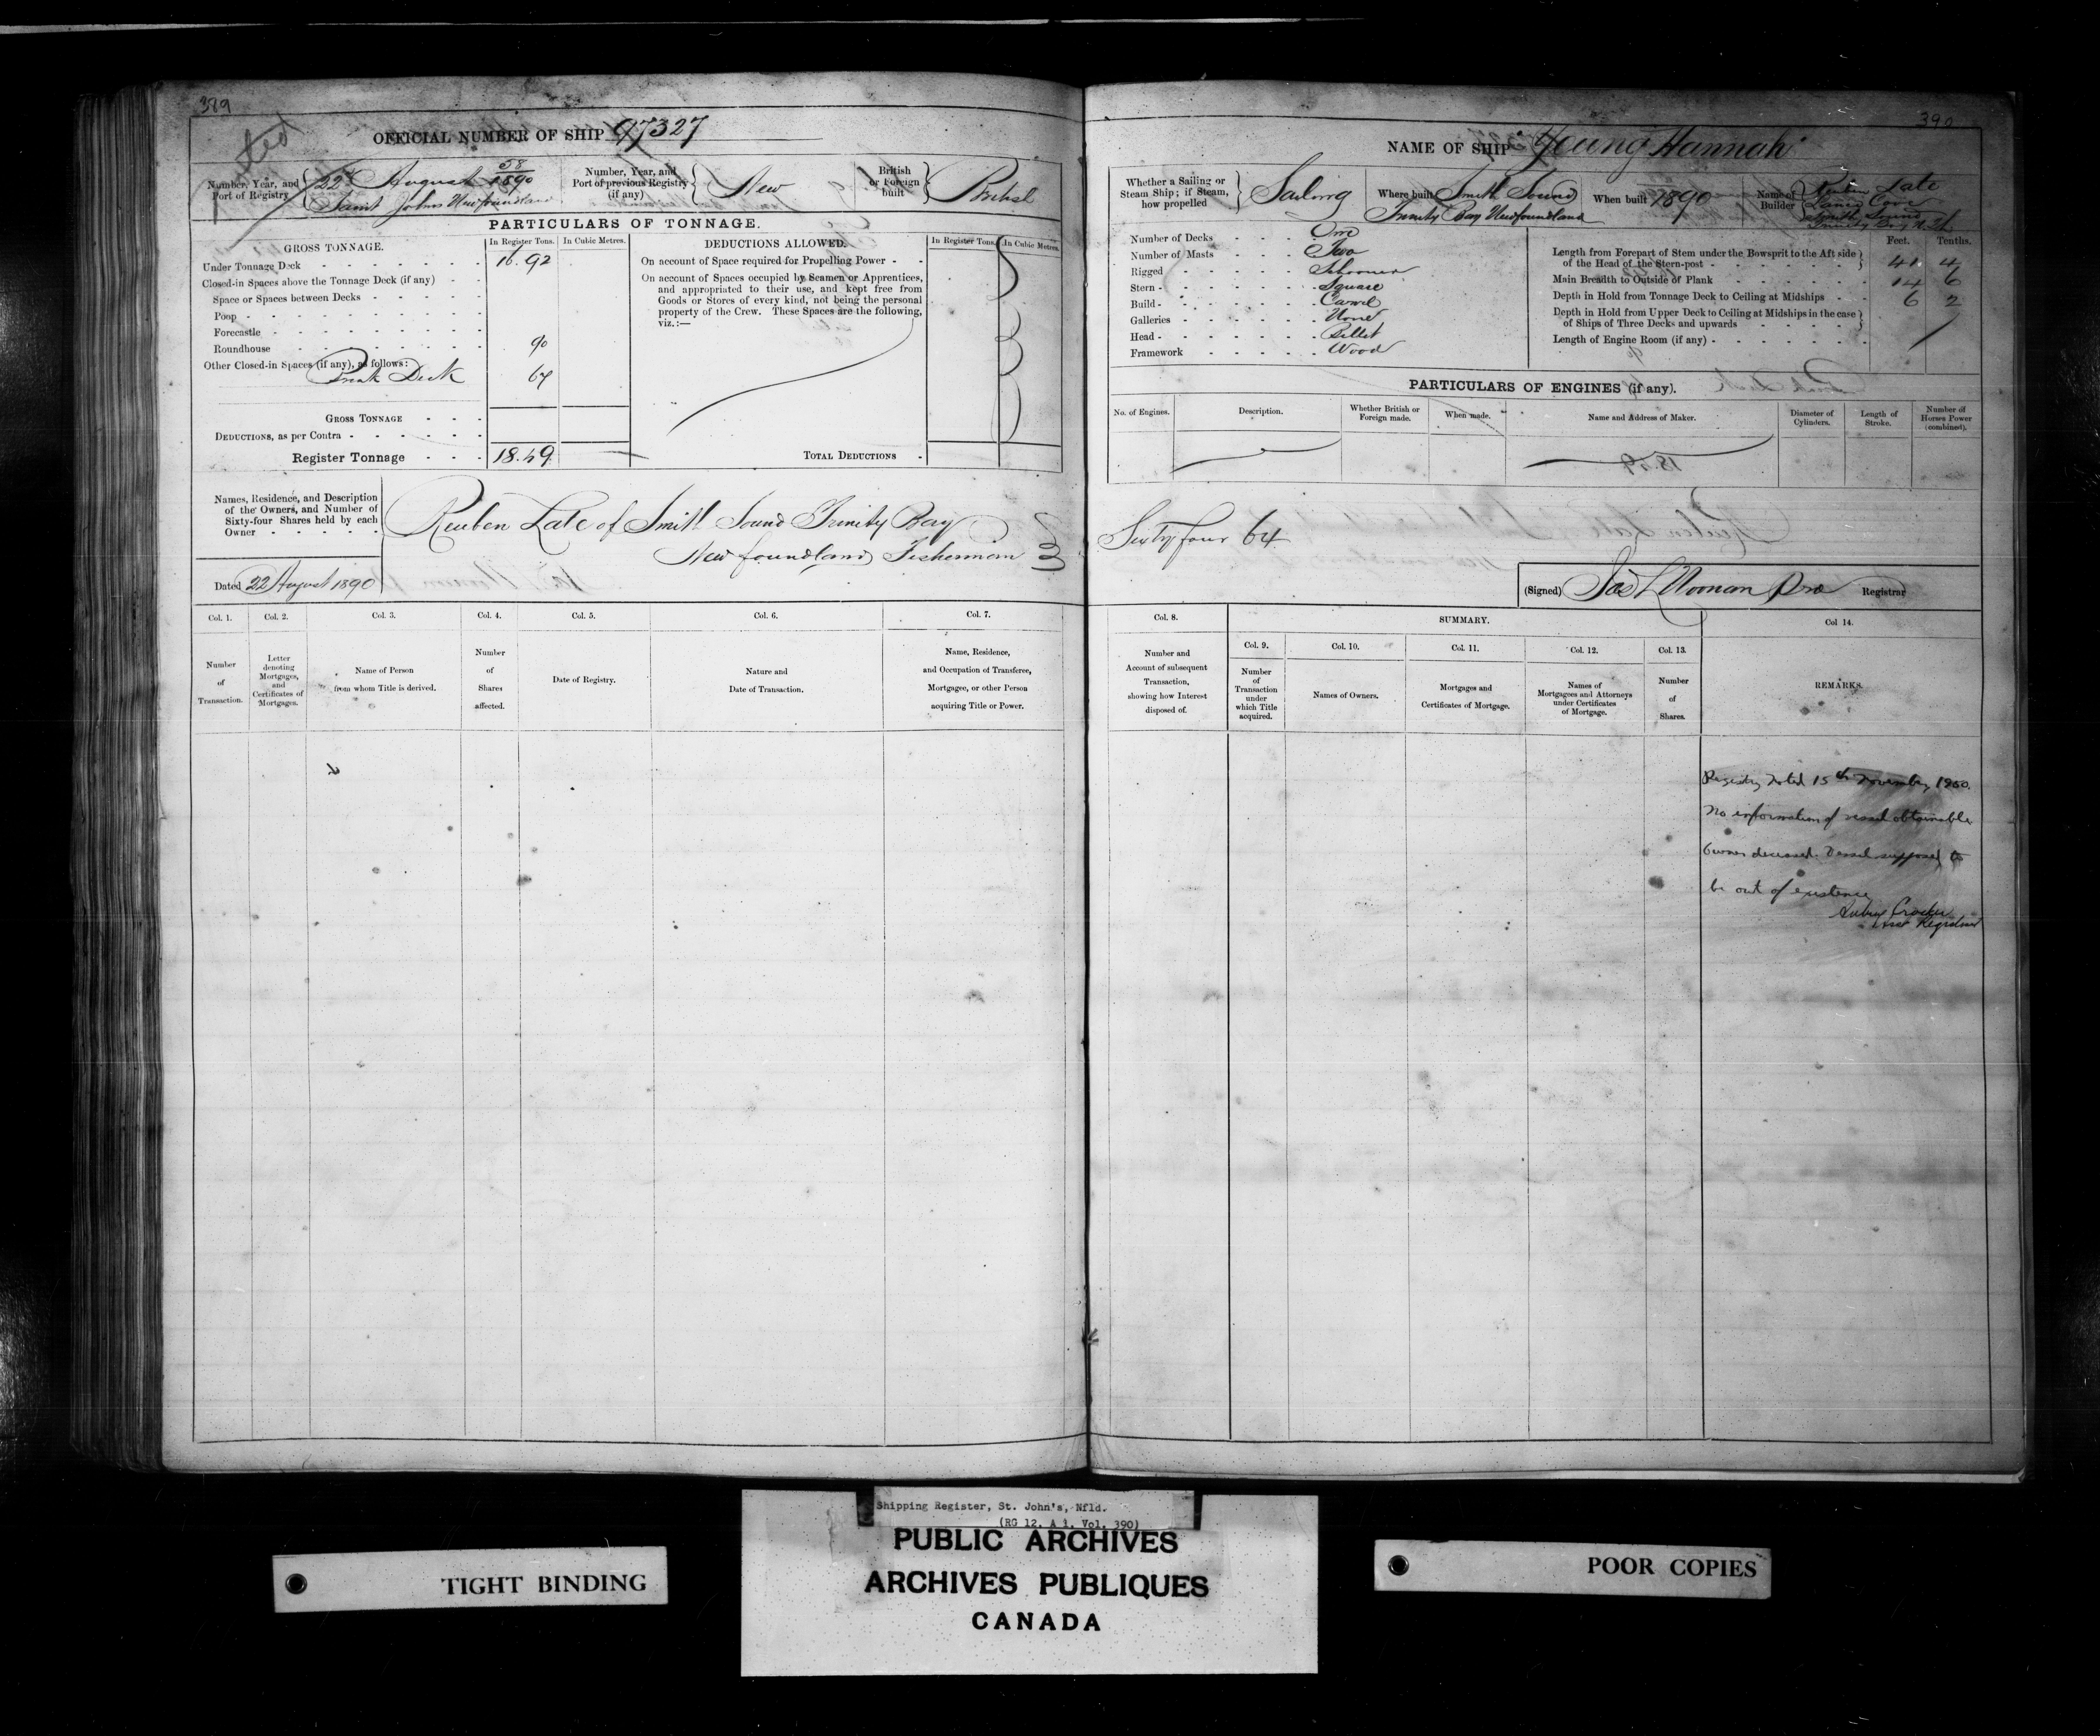 389
OFFICIAL NUMBER OF SHIP 97327
Number, Year, and Port of Registry
58/1890
22d August
Saint Johns Newfoundland
Number, Year, and Port of previous Registry (if any)
New
British or Foreign built
British
PARTICULARS OF TONNAGE.
GROSS TONNAGE.
In Register Tons.
In Cubic Metres.
Under Tonnage Deck 16.92
Closed-in Spaces above the Tonnage Deck (if any)
Space or Spaces between Decks
Poop
Forecastle
Roundhouse 90
Other Closed-in Spaces (if any), as follows:
Break Deck 67
GROSS TONNAGE
DEDUCTIONS, as per Contra
Register Tonnage 18.49
DEDUCTIONS ALLOWED.
In Register Tons.
In Cubic Metres.
On account of Space required for Propelling Power
On account of Spaces occupied by Seamen or Apprentices,
and appropriated to their use, and kept free from
Goods or Stores of every kind, not being the personal
property of the Crew. These Spaces are the following,
viz.:—
TOTAL DEDUCTIONS
Names, Residence, and Description
of the Owners, and Number of
Sixty-four Shares held by each
Owner
Reuben Late of Smith Sound Trinity Bay
Newfoundland Fisherman
Dated 22 August 1890
Col. 1.
Number
of
Transaction.
Col. 2.
Letter
denoting
Mortgages,
and
Certificates of
Mortgages.
Col. 3.
Name of Person
from whom Title is derived.
Col. 4.
Number
of
Shares
affected.
Col. 5.
Date of Registry.
Col. 6.
Nature and
Date of Transaction.
Col. 7.
Name, Residence,
and Occupation of Transferee,
Mortgagee, or other Person
acquiring Title or Power.
390
NAME OF SHIP "Young Hannah"
Whether a Sailing or
Steam Ship; if Steam,
how propelled
Sailing
Where built
Smith Sound
Trinity Bay Newfoundland
When built 1890
Name of Builder
Reuben Late
Cove
Smith Sound
Trinity Bay
Number of Decks One
Number of Masts Two
Rigged Schooner
Stern Square
Build Carvel
Galleries None
Head Billet
Framework Wood
Feet. Tenths.
Length from Forepart of Stem under the Bowsprit to the Aft side
of the Head of the Stern-post 41 4
Main Breadth to Outside of Plank 14 6
Depth in Hold from Tonnage Deck to Ceiling at Midships 6 2
Depth in Hold from Upper Deck to Ceiling at Midships in the case
of Ships of Three Decks and upwards
Length of Engine Room (if any)
PARTICULARS OF ENGINES (if any).
No. of Engines.
Description.
Whether British or
Foreign made.
When made.
Name and Address of Maker.
Diameter of
Cylinders.
Length of
Stroke.
Number of
Horses Power
(combined).
Sixty four 64
(Signed) Jas L Noonan Pro Registrar
Col. 8.
Number and
Account of subsequent
Transaction,
showing how Interest
disposed of.
SUMMARY.
Col. 9.
Number
of
Transaction
under
which Title
acquired.
Col. 10.
Names of Owners.
Col. 11.
Mortgages and
Certificates of Mortgage.
Col. 12.
Names of
Mortgagees and Attorneys
under Certificates
of Mortgage.
Col. 13.
Number
of
Shares.
Col 14.
REMARKS.
Registry noted 15th November 1950.
No information of vessel obtainable
Owner deceased. Vessel supposed to
be out of existence
Asst Registrar
Shipping Register, St. John's, Nfld.
(RG 12, A 1, Vol. 390)
PUBLIC ARCHIVES
ARCHIVES PUBLIQUES
CANADA
TIGHT BINDING
POOR COPIES